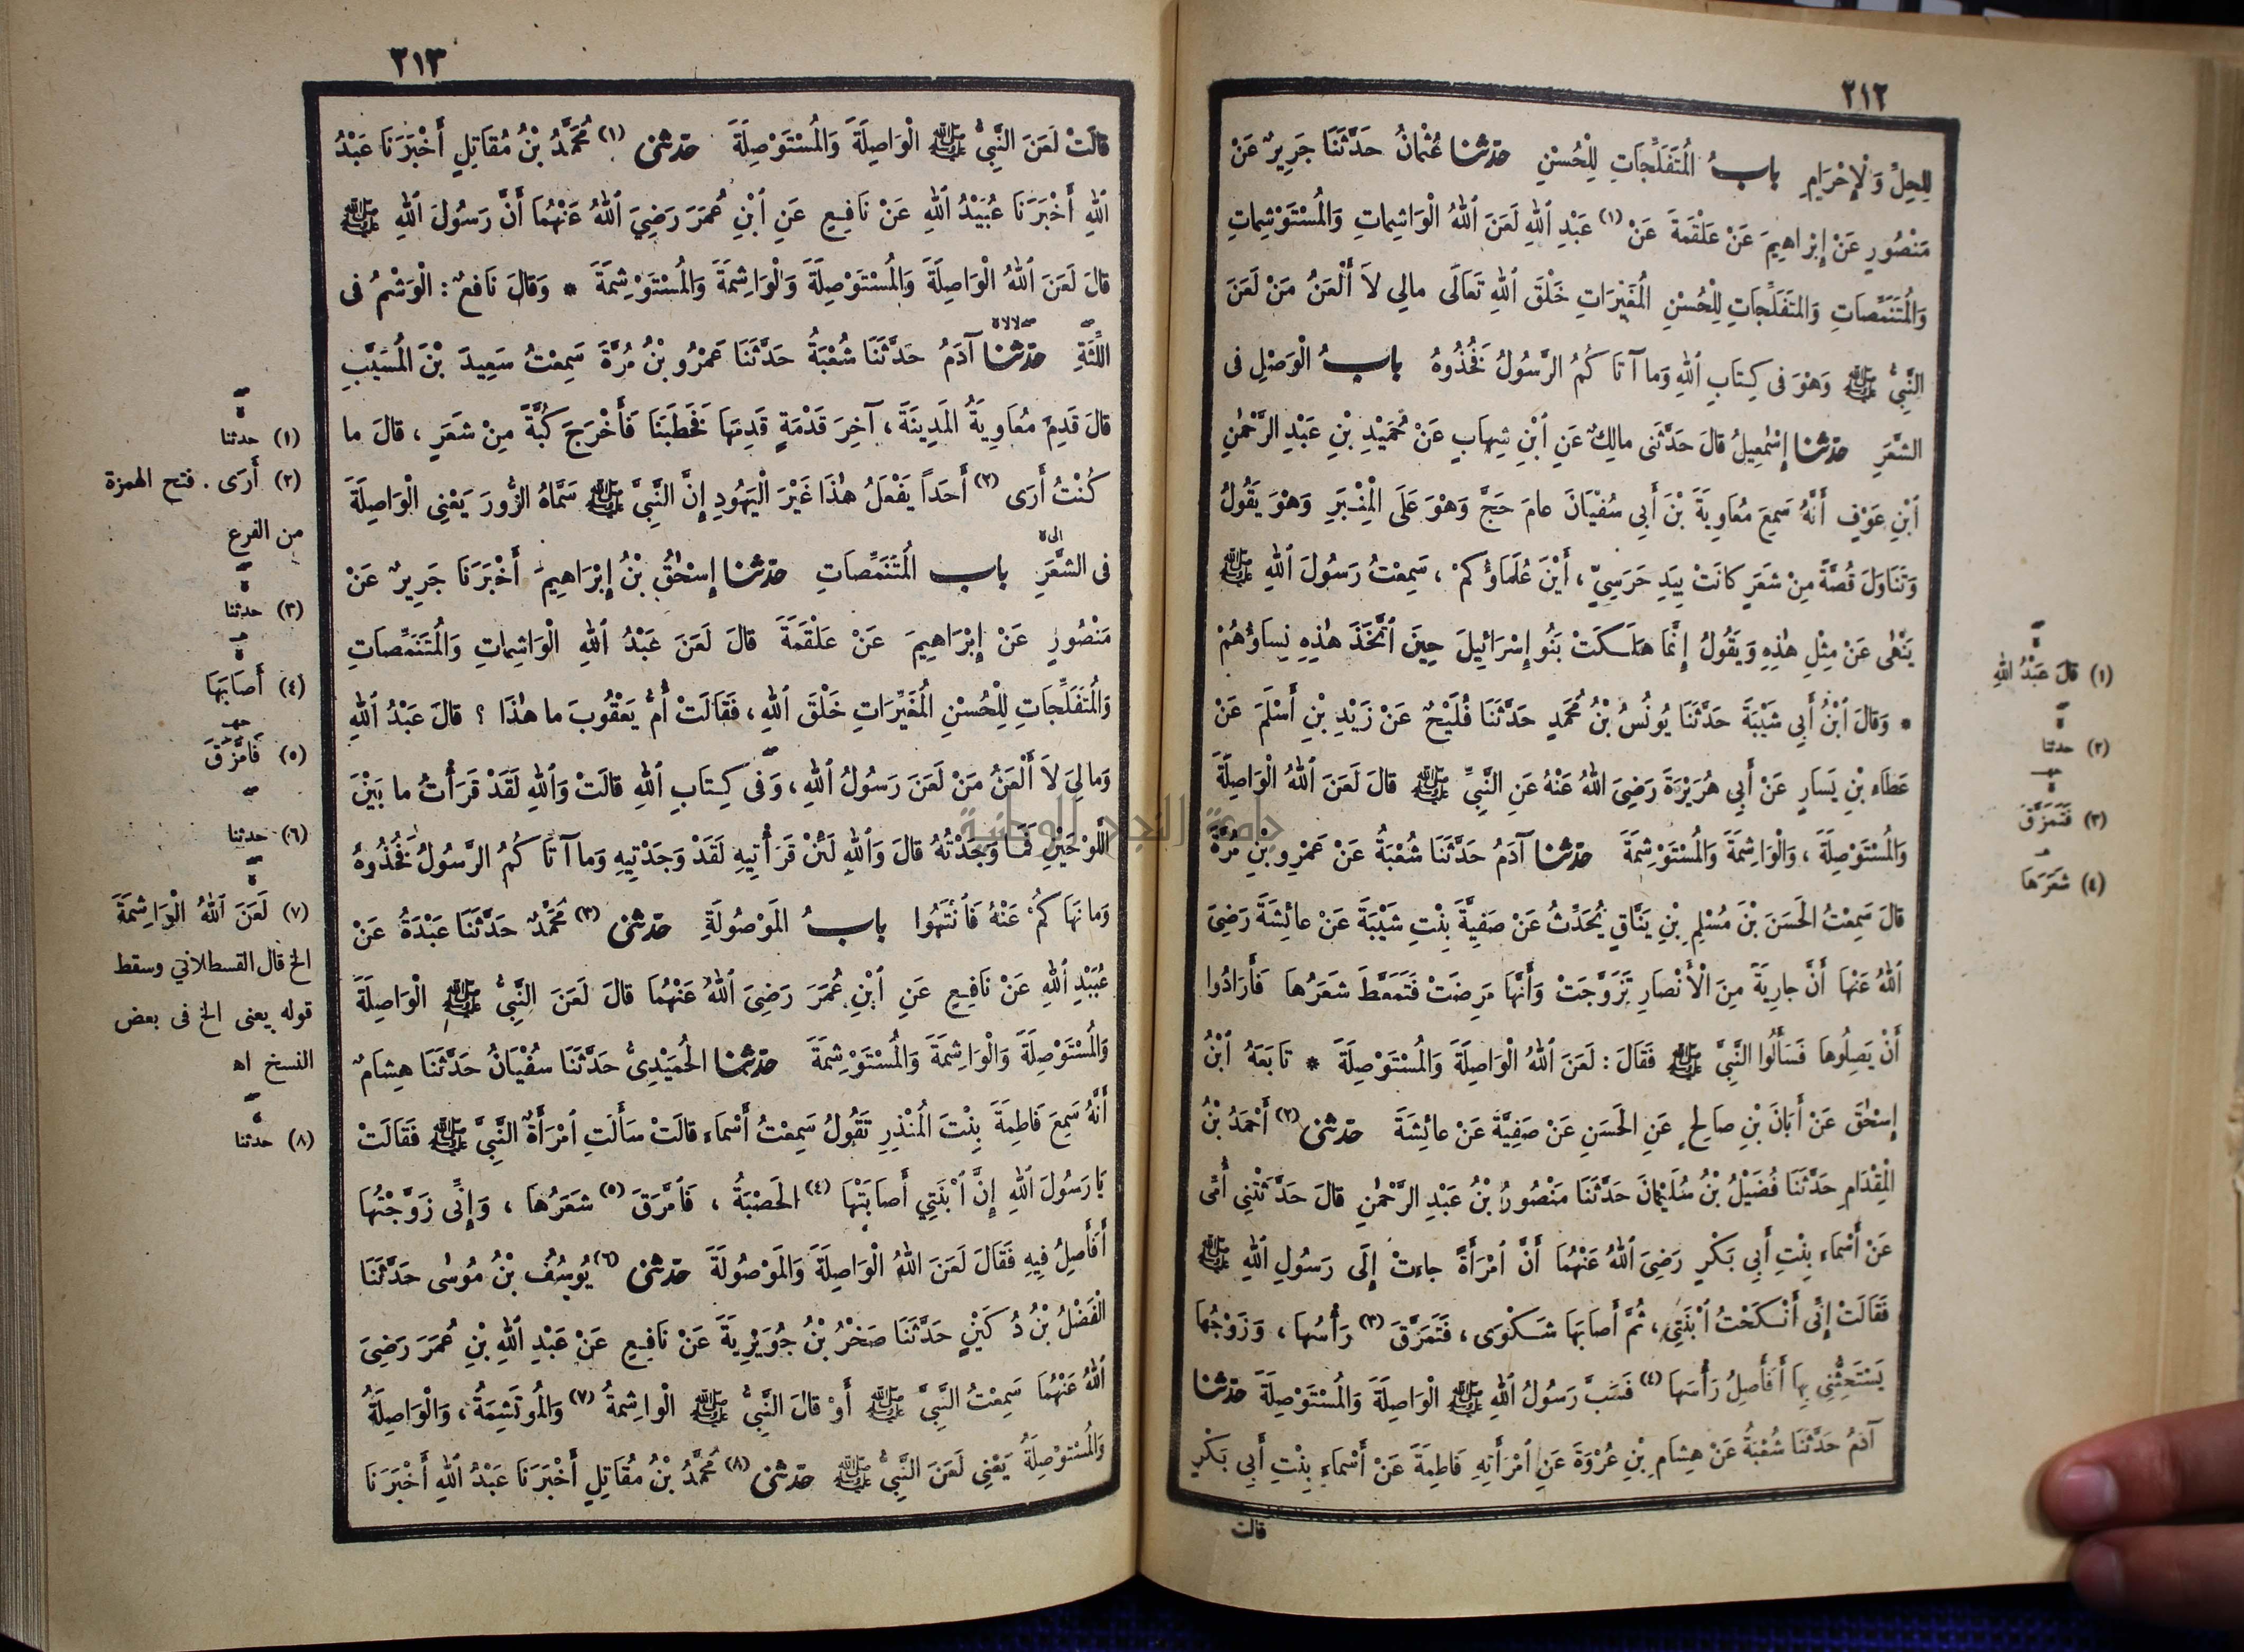 ٢١٢
لِلْحِلِّ وَالْإِحْرَامِ بابُ الْمُتَفَلِّجَاتِ لِلْحُسْنِ حدّثنا عُثْمانُ حَدَّثَنَا جَرِيرٌ عَنْ
مَنْصُورٍ عَنْ إِبْرَاهِيمَ عَنْ عَلْقَمَةَ عَنْ (١) عَبْدِ اللهِ لَعَنَ اللهُ الْوَاشِماتِ وَالْمُسْتَوْشِماتِ
وَالْمُتَنَمِّصاتِ وَالْمُتَفَلِّجاتِ لِلْحُسْنِ الْمُغَيِّرَاتِ خَلْقَ اللهِ تَعَالَى مالِي لاَ أَلْعَنُ مَنْ لَعَنَ
النَّبِيُّ ﷺ وَهْوَ فى كِتَابِ اللهِ وَما آتَا كُمُ الرَّسُولُ فَخُذُوهُ بابُ الْوَصْلِ فى
الشَّعَرِ حدّثنا إِسْمٰعِيلُ قالَ حَدَّثَنى مالِكٌ عَنِ ابْنِ شِهَابٍ عَنْ حُمَيْدِ بْنِ عَبْدِ الرَّحْمٰنِ
ابْنِ عَوْفٍ أَنَّهُ سَمِعَ مُعَاوِيَةَ بْنَ أَبِي سُفْيَانَ عامَ حَجَّ وَهْوَ عَلَى الْمِنْبَرِ وَهْوَ يَقُولُ
وَتَنَاوَلَ قُصَّةً مِنْ شَعَرٍ كانَتْ بِيَدِ حَرَسِيٍّ ، أَيْنَ عُلَمَاؤُكُمْ ، سَمِعْتُ رَسُولَ اللهِ ﷺ
يَنْهٰى عَنْ مِثْلِ هٰذِهِ وَيَقُولُ إِنَّمَا هَلَكَتْ بَنُو إِسْرَائِيلَ حِينَ اتَّخَذَ هٰذِهِ نِساؤُهُمْ
* وَقالَ ابْنُ أَبِي شَيْبَةَ حَدَّثَنَا يُونُسُ بْنُ مُحَمَّدٍ حَدَّثَنَا فُلَيْحٌ عَنْ زَيْدِ بْنِ أَسْلَمَ عَنْ
عَطَاءِ بْنِ يَسَارٍ عَنْ أَبِي هُرَيْرَةَ رَضِيَ اللهُ عَنْهُ عَنِ النَّبِيِّ ﷺ قالَ لَعَنَ اللهُ الْوَاصِلَةَ
وَالْمُسْتَوْصِلَةَ ، وَالْوَاشِمَةَ وَالْمُسْتَوْشِمَةَ حدّثنا آدَمُ حَدَّثَنَا شُعْبَةُ عَنْ عَمْرِو بْنِ مُرَّةَ
قالَ سَمِعْتُ الْحَسَنَ بْنَ مُسْلِمِ بْنِ يَنَّاقٍ يُحَدِّثُ عَنْ صَفِيَّةَ بِنْتِ شَيْبَةَ عَنْ عائِشَةَ رَضِيَ
اللهُ عَنْهَا أَنَّ جارِيَةً مِنَ الْأَنْصَارِ تَزَوَّجَتْ وَأَنَّهَا مَرِضَتْ فَتَمَعَّطَ شَعَرُها فَأَرَادُوا
أَنْ يَصِلُوها فَسَأَلُوا النَّبِيَّ ﷺ فَقَالَ : لَعَنَ اللهُ الْوَاصِلَةَ وَالْمُسْتَوْصِلَةَ * تَابَعَهُ ابْنُ
إِسْحٰقَ عَنْ أَبَانَ بْنِ صَالِحٍ عَنِ الْحَسَنِ عَنْ صَفِيَّةَ عَنْ عائِشَةَ حدّثنى (٢) أَحْمَدُ بْنُ
الْمِقْدَامِ حَدَّثَنَا فُضَيْلُ بْنُ سُلَيْمَانَ حَدَّثَنَا مَنْصُورُ بْنُ عَبْدِ الرَّحْمٰنِ قالَ حَدَّثَتْنِي أُمِّى
عَنْ أَسْمَاءَ بِنْتِ أَبِي بَكْرٍ رَضِيَ اللهُ عَنْهُمَا أَنَّ امْرَأَةً جاءَتْ إِلَى رَسُولِ اللهِ ﷺ
فَقَالَتْ إِنِّى أَنْكَحْتُ ابْنَتِي ، ثُمَّ أَصَابَهَا شَكْوَى ، فَتَمَرَّقَ (٣) رَأْسُها ، وَزَوْجُها
يَسْتَحِثُّنِي بِهَا أَفَأَصِلُ رَأْسَهَا (٤) فَسَبَّ رَسُولُ اللهِ ﷺ الْوَاصِلَةَ وَالْمُسْتَوْصِلَةَ حدّثنا
آدَمُ حَدَّثَنَا شُعْبَةُ عَنْ هِشَامِ بْنِ عُرْوَةَ عَنِ امْرَأَتِهِ فَاطِمَةَ عَنْ أَسْمَاءَ بِنْتِ أَبِي بَكْرٍ
قالت
(١) قالَ عَبْدُ اللهِ
(٢) حدثنا
(٣) فَتَمَزَّقَ
(٤) شَعَرَهَا
٢١٣
قالَتْ لَعَنَ النَّبِيُّ ﷺ الْوَاصِلَةَ وَالْمُسْتَوْصِلَةَ حدّثنى (١) مُحَمَّدُ بْنُ مُقَاتِلٍ أَخْبَرَنَا عَبْدُ
اللهِ أَخْبَرَنَا عُبَيْدُ اللهِ عَنْ نَافِعٍ عَنِ ابْنِ عُمَرَ رَضِيَ اللهُ عَنْهُمَا أَنَّ رَسُولَ اللهِ ﷺ
قالَ لَعَنَ اللهُ الْوَاصِلَةَ وَالْمُسْتَوْصِلَةَ وَالْوَاشِمَةَ وَالْمُسْتَوْشِمَةَ * وَقالَ نَافِعٌ : الْوَشْمُ فى
اللِّثَةِ حدّثنا آدَمُ حَدَّثَنَا شُعْبَةُ حَدَّثَنَا عَمْرُو بْنُ مُرَّةَ سَمِعْتُ سَعِيدَ بْنَ الْمُسَيَّبِ
قالَ قَدِمَ مُعَاوِيَةُ الْمَدِينَةَ ، آخِرَ قَدْمَةٍ قَدِمَهَا فَخَطَبَنَا فَأَخْرَجَ كُبَّةً مِنْ شَعَرٍ ، قالَ ما
كُنْتُ أَرَى (٢) أَحَداً يَفْعَلُ هٰذَا غَيْرَ الْيَهُودِ إِنَّ النَّبِيَّ ﷺ سَمَّاهُ الزُّورَ يَعْنِى الْوَاصِلَةَ
فى الشَّعَرِ باب الْمُتَنَمِّصاتِ حدّثنا إِسْحٰقُ بْنُ إِبْرَاهِيمَ أَخْبَرَنَا جَرِيرٌ عَنْ
مَنْصُورٍ عَنْ إِبْرَاهِيمَ عَنْ عَلْقَمَةَ قالَ لَعَنَ عَبْدُ اللهِ الْوَاشِماتِ وَالْمُتَنَمِّصاتِ
وَالْمُتَفَلِّجَاتِ لِلْحُسْنِ الْمُغَيِّرَاتِ خَلْقَ اللهِ ، فَقَالَتْ أُمُّ يَعْقُوبَ ما هٰذَا ؟ قالَ عَبْدُ اللهِ
وَمالِيَ لاَ أَلْعَنُ مَنْ لَعَنَ رَسُولُ اللهِ ، وَفى كِتَابِ اللهِ قالَتْ وَاللهِ لَقَدْ قَرَأْتُ ما بَيْنَ
اللَّوْحَيْنِ فَمَا وَجَدْتُهُ قالَ وَاللهِ لَئِنْ قَرَأْتِيهِ لَقَدْ وَجَدْتِيهِ وَما آتَا كُمُ الرَّسُولُ فَخُذُوهُ
وَمانَهَا كُمْ عَنْهُ فَانْتَهُوا بابُ الْمَوْصُولَةِ حدّثنى (٣) مُحَمَّدٌ حَدَّثَنَا عَبْدَةُ عَنْ
عُبَيْدِ اللهِ عَنْ نَافِعٍ عَنِ ابْنِ عُمَرَ رَضِيَ اللهُ عَنْهُمَا قالَ لَعَنَ النَّبِيُّ ﷺ الْوَاصِلَةَ
وَالْمُسْتَوْصِلَةَ وَالْوَاشِمَةَ وَالْمُسْتَوْشِمَةَ حدّثنا الْحُمَيْدِيُّ حَدَّثَنَا سُفْيَانُ حَدَّثَنَا هِشامٌ
أَنَّهُ سَمِعَ فَاطِمَةَ بِنْتَ الْمُنْذِرِ تَقُولُ سَمِعْتُ أَسْماءَ قالَتْ سَأَلَتِ امْرَأَةٌ النَّبِيَّ ﷺ فَقَالَتْ
يَا رَسُولَ اللهِ إِنَّ ابْنَتِي أَصابَتْهَا (٤) الْحَصْبَةُ ، فَامَّرَقَ (٥) شَعَرُهَا ، وَإِنِّى زَوَّجْتُهَا
أَفَأَصِلُ فِيهِ فَقَالَ لَعَنَ اللهُ الْوَاصِلَةَ وَالْمَوْصُولَةَ حدّثنى (٦) يُوسُفُ بْنُ مُوسٰى حَدَّثَنَا
الْفَضْلُ بْنُ دُ كَيْنٍ حَدَّثَنَا صَخْرُ بْنُ جُوَيْرِيَةَ عَنْ نَافِعٍ عَنْ عَبْدِ اللهِ بْنِ عُمَرَ رَضِيَ
اللهُ عَنْهُمَا سَمِعْتُ النَّبِيَّ ﷺ أَوْ قالَ النَّبِيُّ ﷺ الْوَاشِمةُ (٧) وَالْمُوتَشِمَةُ ، وَالْوَاصِلَةُ
وَالْمُسْتَوْصِلَةُ يَعْنِى لَعَنَ النَّبِيُّ ﷺ حدّثنى (٨) مُحَمَّدُ بْنُ مُقَاتِلٍ أَخْبَرَنَا عَبْدُ اللهِ أَخْبَرَنَا
(١) حدثنا
(٢) أَرَى . فتح الهمزة
من الفرع
(٣) حدثنا
(٤) أَصَابَهَا
(٥) فَامَّزَقَ
(٦) حدثنا
(٧) لَعَنَ اللهُ الْوَاشِمَةَ
الخ قال القسطلاني وسقط
قوله يعنى الخ فى بعض
النسخ اه
(٨) حدثنا
جامعة النجاح الوطنية